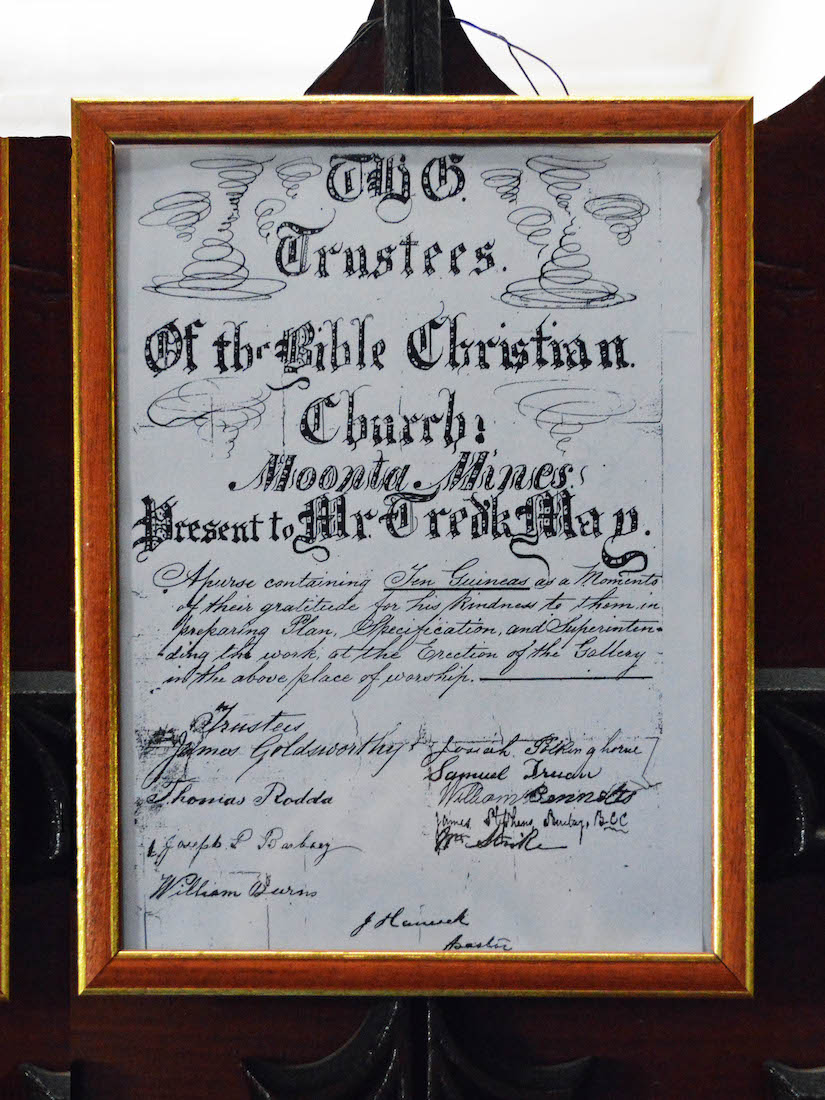 The
Trustees.
Of the Bible Christian.
Church:
Moonta Mines.
Present to Mr. Fredk May.
A purse containing Ten Guineas as a Momento
of their gratitude for his kindness to them in
preparing Plan, Specification, and Superinten-
ding the work, at the Erection of the Gallery
in the above place of worship.
Trustees
James Goldsworthy
Josiah Polkinghorne
Samuel Truan
Thomas Rodda
William Bennetts
James Stephens, B.C.C
Joseph
Wm Strike
William Burns
J Hancock
Pastor